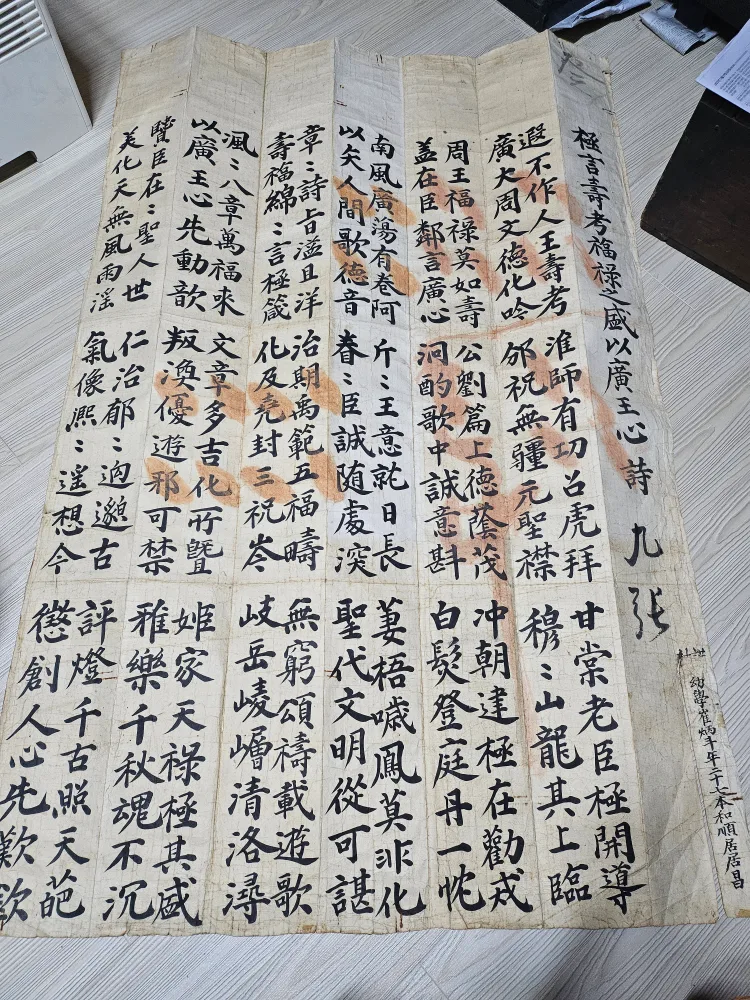 極言壽考福祿之盛以廣王心詩 九張
遐不作人王壽考
廣大周文德化吟
淮師有功召虎拜
邠祝無疆元聖襟
甘棠老臣極開導
穆〻山龍其上臨
周王福祿莫如壽
盖在臣鄰言廣心
公劉篇上德蔭茂
泂酌歌中誠意斟
冲朝建極在勸戒
白髮登庭丹一忱
南風廣蕩有卷阿
以矢人間歌德音
斤〻王意就日長
眷〻臣誠随處湥
萋梧噦鳳莫非化
聖代文明從可諶
章〻詩旨溢且洋
壽福綿〻言極箴
治期禹範五福疇
化及堯封三祝岑
無窮頌禱載遊歌
岐岳崚嶒清洛潯
渢〻八章萬福來
以廣王心先動歆
文章多吉化所曁
叛渙優遊邪可禁
姬家天祿極其盛
雅樂千秋魂不沉
賢臣在〻聖人世
美化天無風雨淫
仁治郁〻迵邈古
氣像熈〻遥想今
評燈千古照天葩
懲創人心先歎欽
幼學崔炳斗年二十七本和順居居昌